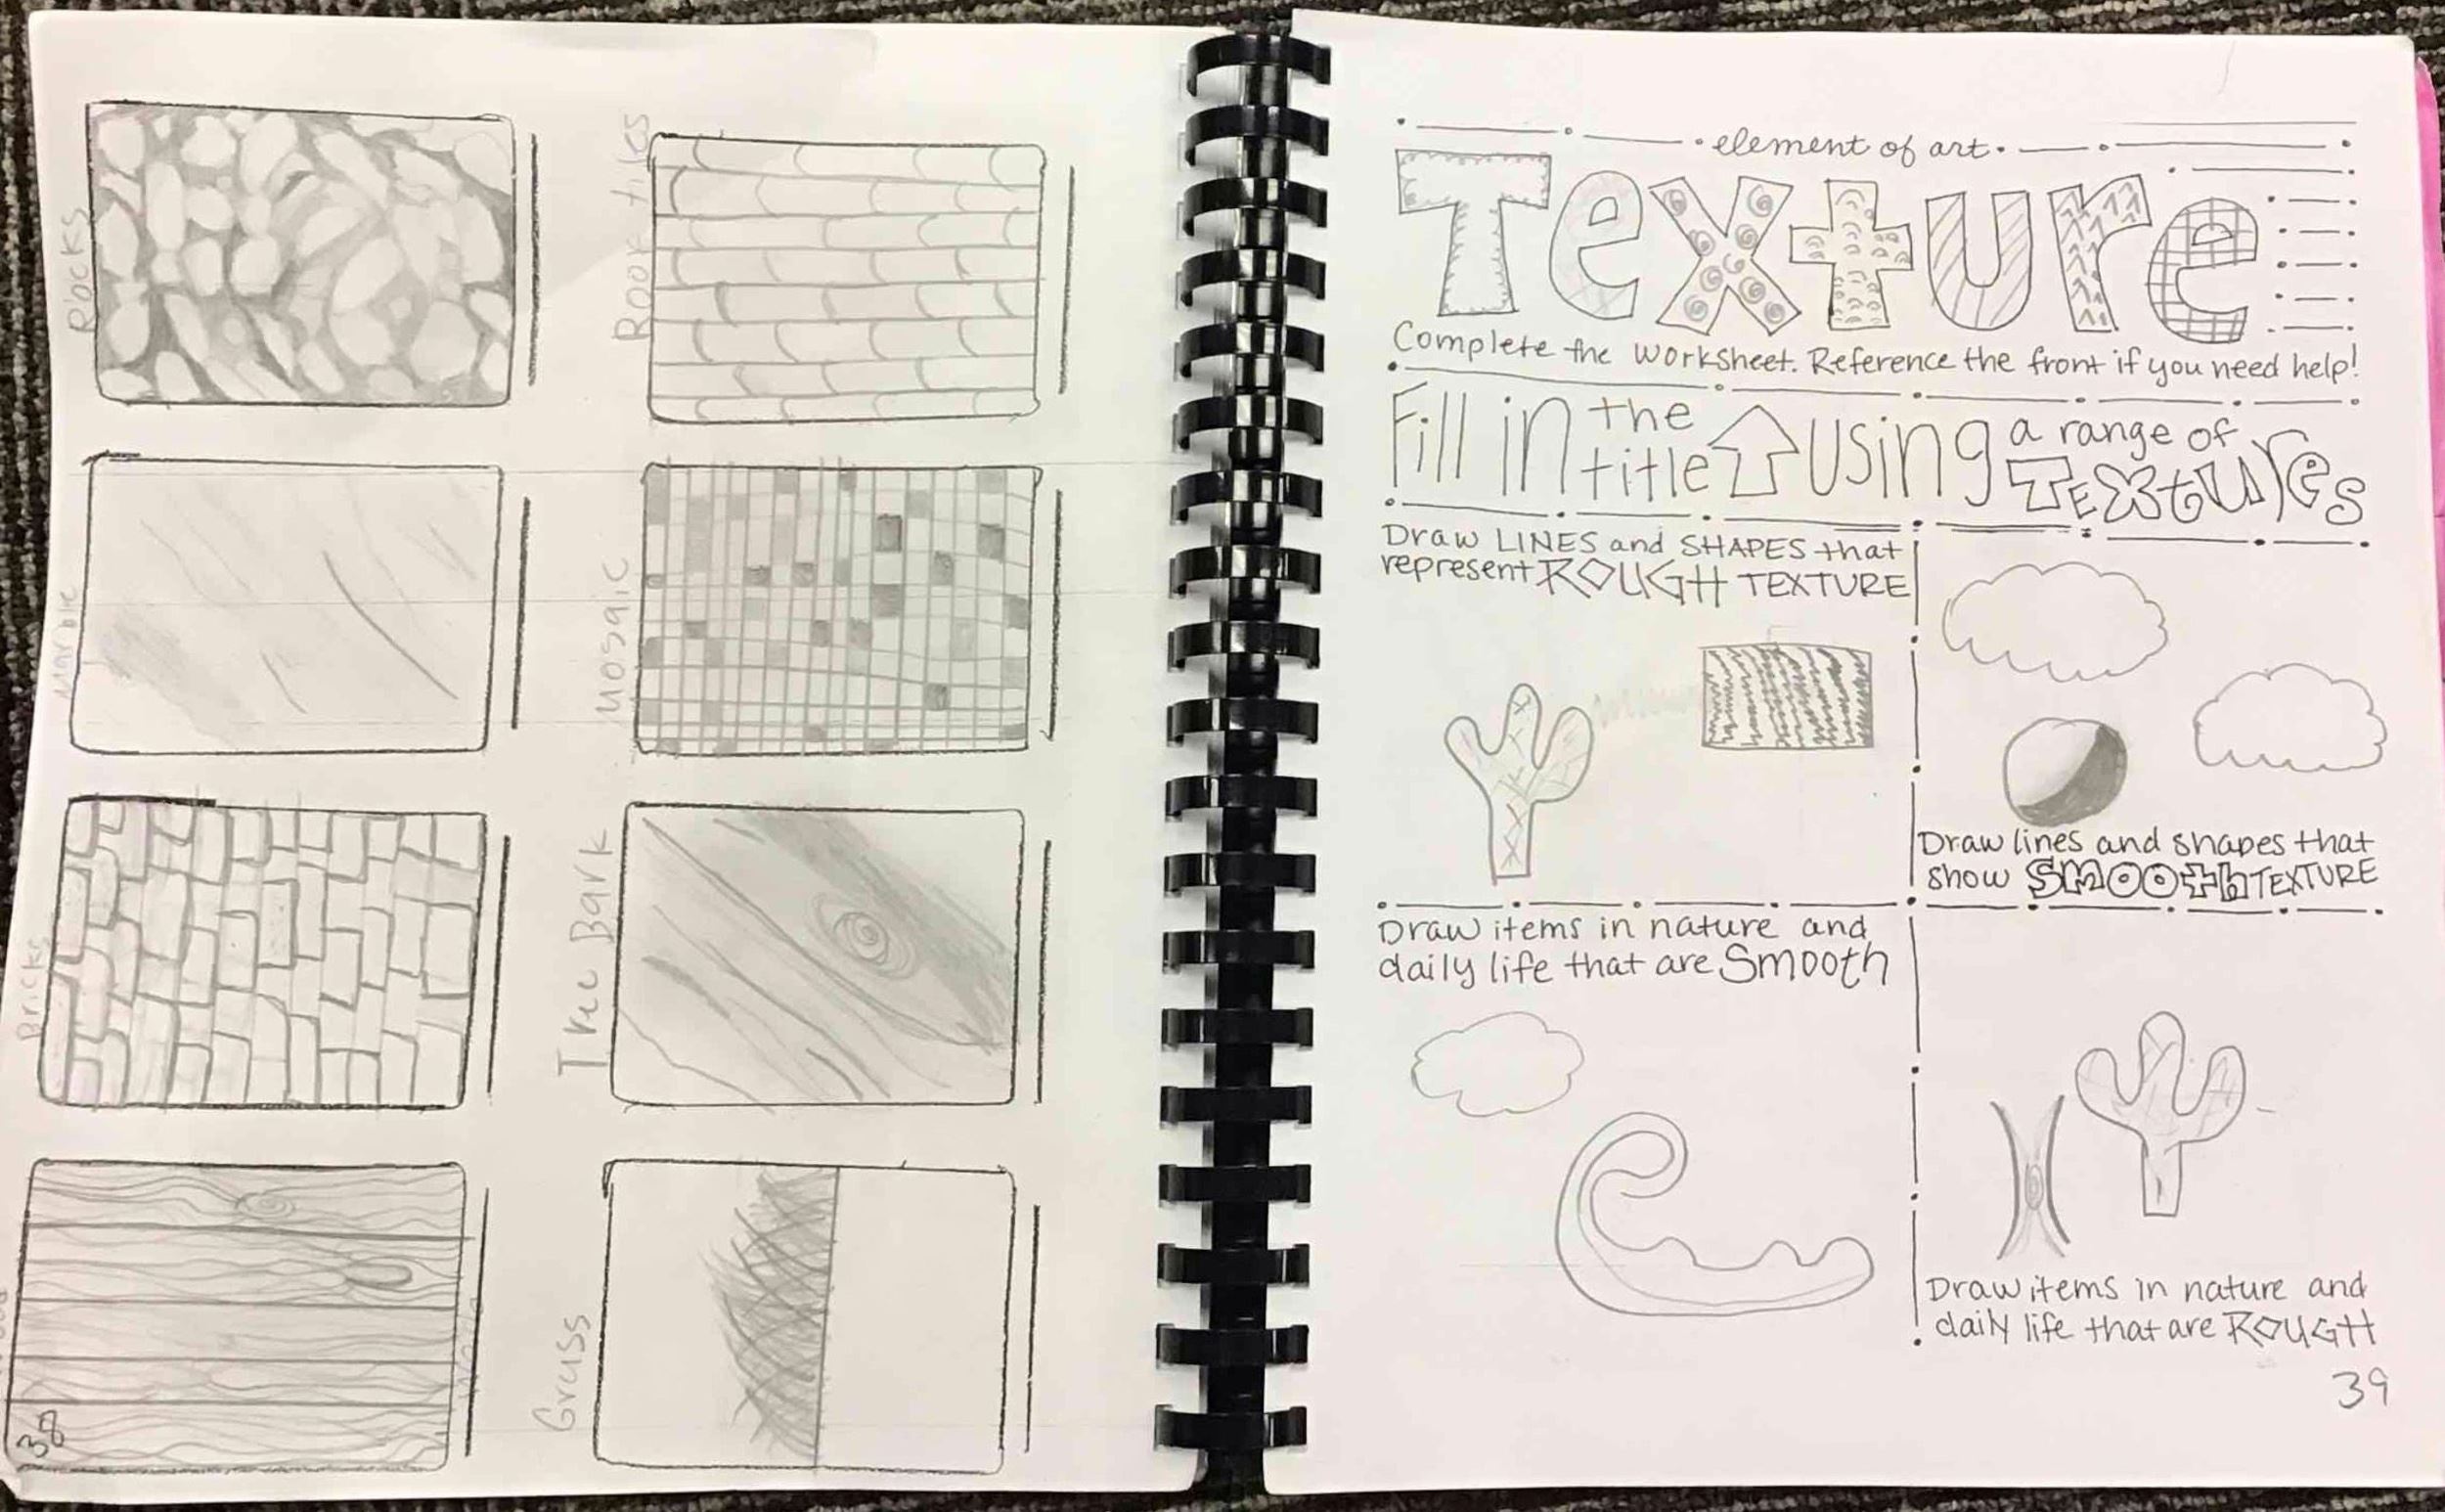 Rocks
Roof tiles
Marble
Mosaic
Bricks
Tree Bark
Grass
38
element of art
Texture
Complete the worksheet. Reference the front if you need help!
Fill in the title using a range of Textures
Draw LINES and SHAPES that
represent ROUGH TEXTURE
Draw lines and shapes that
show SMOOTH TEXTURE
Draw items in nature and
daily life that are Smooth
Draw items in nature and
daily life that are ROUGH
39